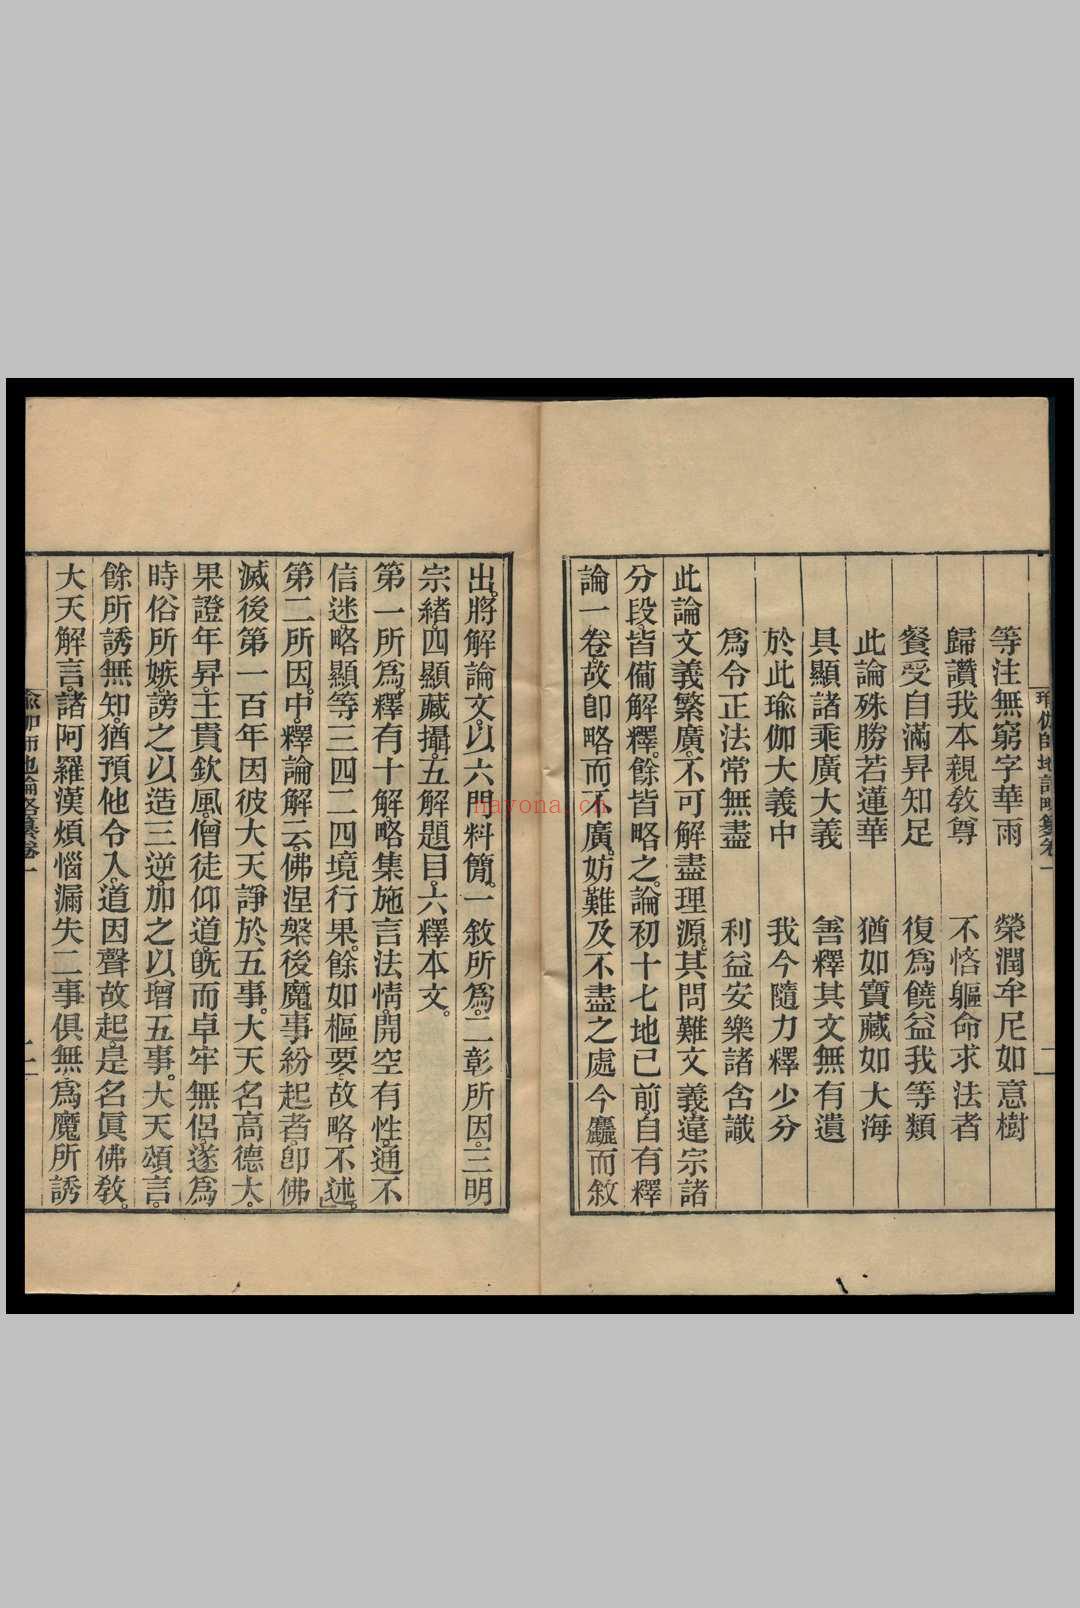 瑜伽師地論略纂卷一 一
等注無窮字華雨 榮潤牟尼如意樹
歸讚我本親教尊 不悋軀命求法者
餐受自滿昇知足 復爲饒益我等類
此論殊勝若蓮華 猶如寶藏如大海
具顯諸乘廣大義 善釋其文無有遺
於此瑜伽大義中 我今隨力釋少分
爲令正法常無盡 利益安樂諸含識
此論文義繁廣。不可解盡理源。其問難文義違宗諸
分段。皆備解釋。餘皆略之。論初十七地已前。自有釋
論一卷。故卽略而不廣。妨難及不盡之處今麤而敘
出。將解論文。以六門料簡。一敘所爲。二彰所因。三明
宗緒。四顯藏攝。五解題目。六釋本文。
第一所爲。釋有十解。略集施言法情。開空有性。通不
信迷。略顯等三四二四境行果。餘如樞要。故略不述。
第二所因。中。釋論解云。佛涅槃後魔事紛起者。卽佛
滅後第一百年因彼大天諍於五事。大天名高德大。
果證年昇。王貴欽風。僧徒仰道。旣而卓牢無侶。遂爲
時俗所嫉。謗之以造三逆。加之以增五事。大天頌言。
餘所誘無知。猶預他令入。道因聲故起。是名眞佛教。
大天解言。諸阿羅漢煩惱漏失二事俱無。爲魔所誘
瑜伽師地論略纂卷一 二
nayona.cn